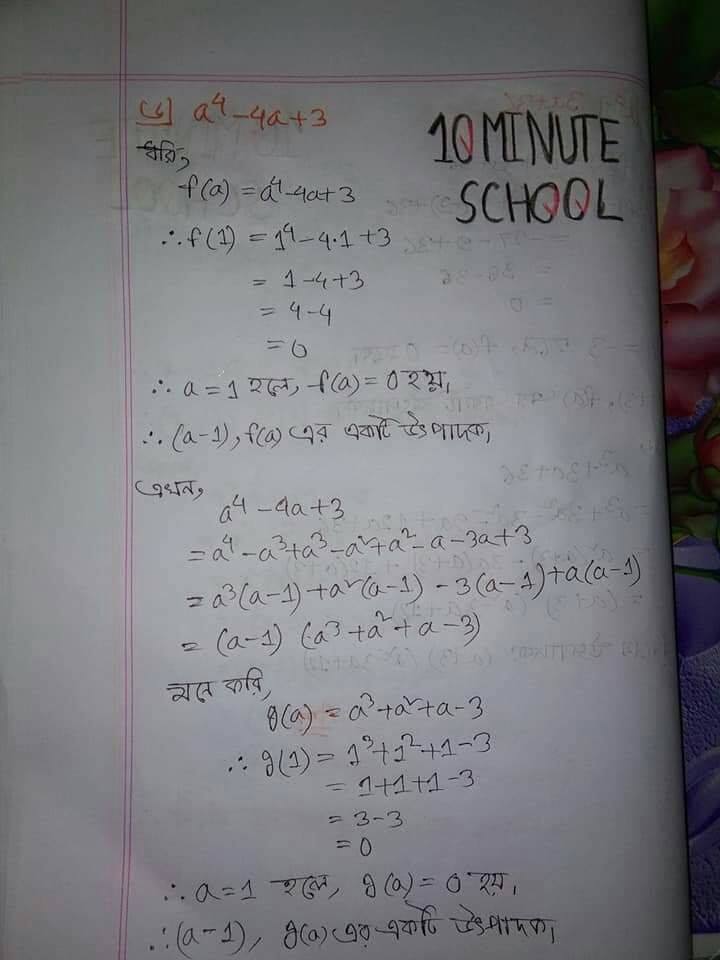 (৬) a⁴-4a+3
10 MINUTE
SCHOOL
ধরি,
f(a) = a⁴-4a+3
∴ f(1) = 1⁴-4·1+3
= 1-4+3
= 4-4
= 0
∴ a=1 হলে, f(a)=0 হয়,
∴ (a-1), f(a) এর একটি উৎপাদক,
এখন,
a⁴-4a+3
= a⁴-a³+a³-a²+a²-a-3a+3
= a³(a-1)+a²(a-1)-3(a-1)+a(a-1)
= (a-1) (a³+a²+a-3)
মনে করি,
g(a) = a³+a²+a-3
∴ g(1) = 1³+1²+1-3
= 1+1+1-3
= 3-3
= 0
∴ a=1 হলে, g(a)=0 হয়,
∴ (a-1), g(a) এর একটি উৎপাদক,